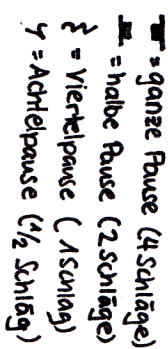 = ganze Pause (4 Schläge)
= halbe Pause (2 Schläge)
= Viertelpause (1 Schlag)
= Achtelpause (1/2 Schlag)